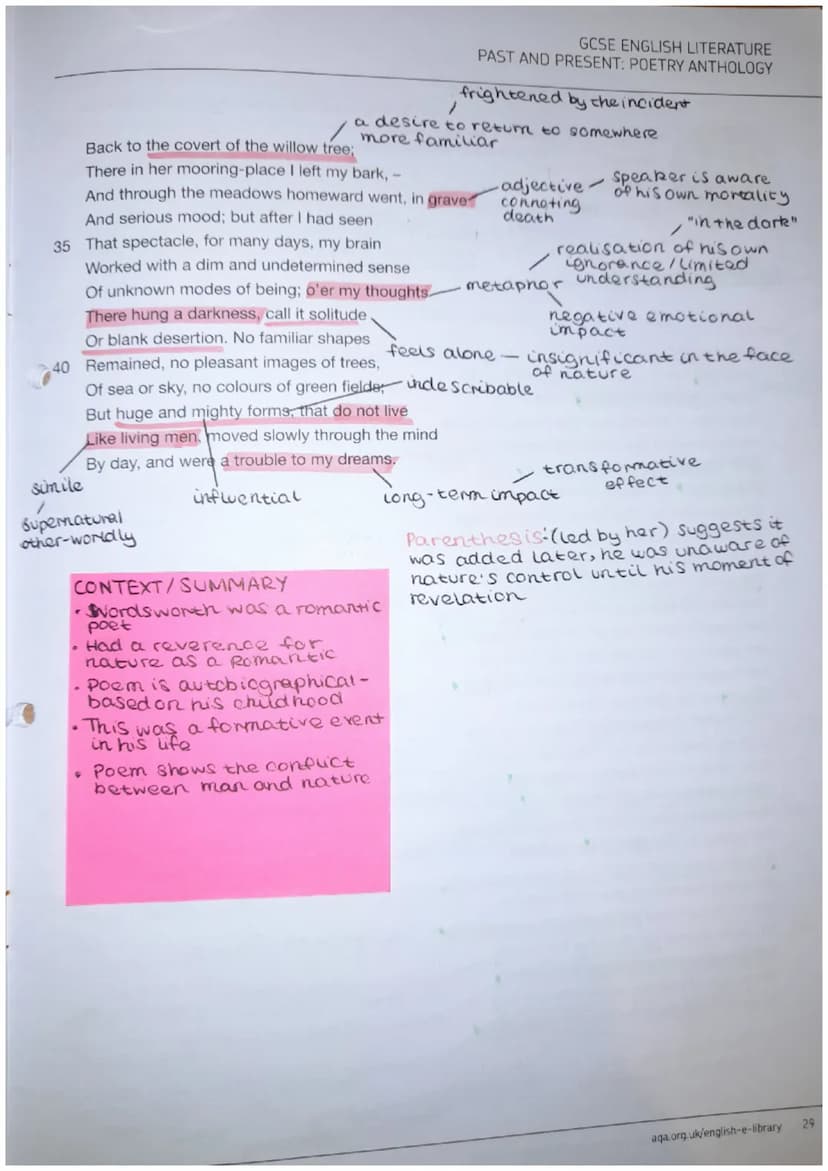 GCSE ENGLISH LITERATURE
PAST AND PRESENT: POETRY ANTHOLOGY
frightened by the incident
a desire to return to somewhere
more familiar
Back to the covert of the willow tree;
There in her mooring-place I left my bark, –
And through the meadows homeward went, in grave
And serious mood; but after I had seen
35 That spectacle, for many days, my brain
Worked with a dim and undetermined sense
Of unknown modes of being; o'er my thoughts
There hung a darkness, call it solitude
Or blank desertion. No familiar shapes
40 Remained, no pleasant images of trees,
Of sea or sky, no colours of green fields;
But huge and mighty forms, that do not live
Like living men, moved slowly through the mind
By day, and were a trouble to my dreams.
adjective
connoting
death
speaker is aware
of his own mortality
"in the dark"
realisation of his own
ignorance / limited
understanding
metaphor
negative emotional
impact
feels alone – insignificant in the face
of nature
indescribable
simile
supernatural
other-worldly
influential
long-term impact
transformative
effect
Parenthesis: (led by her) suggests it
was added later, he was unaware of
nature's control until his moment of
revelation
CONTEXT/SUMMARY
• Wordsworth was a romantic
poet
• Had a reverence for
nature as a Romantic
• Poem is autobiographical-
based on his childhood
• This was a formative event
in his life
• Poem shows the conflict
between man and nature
aqa.org.uk/english-e-library 29